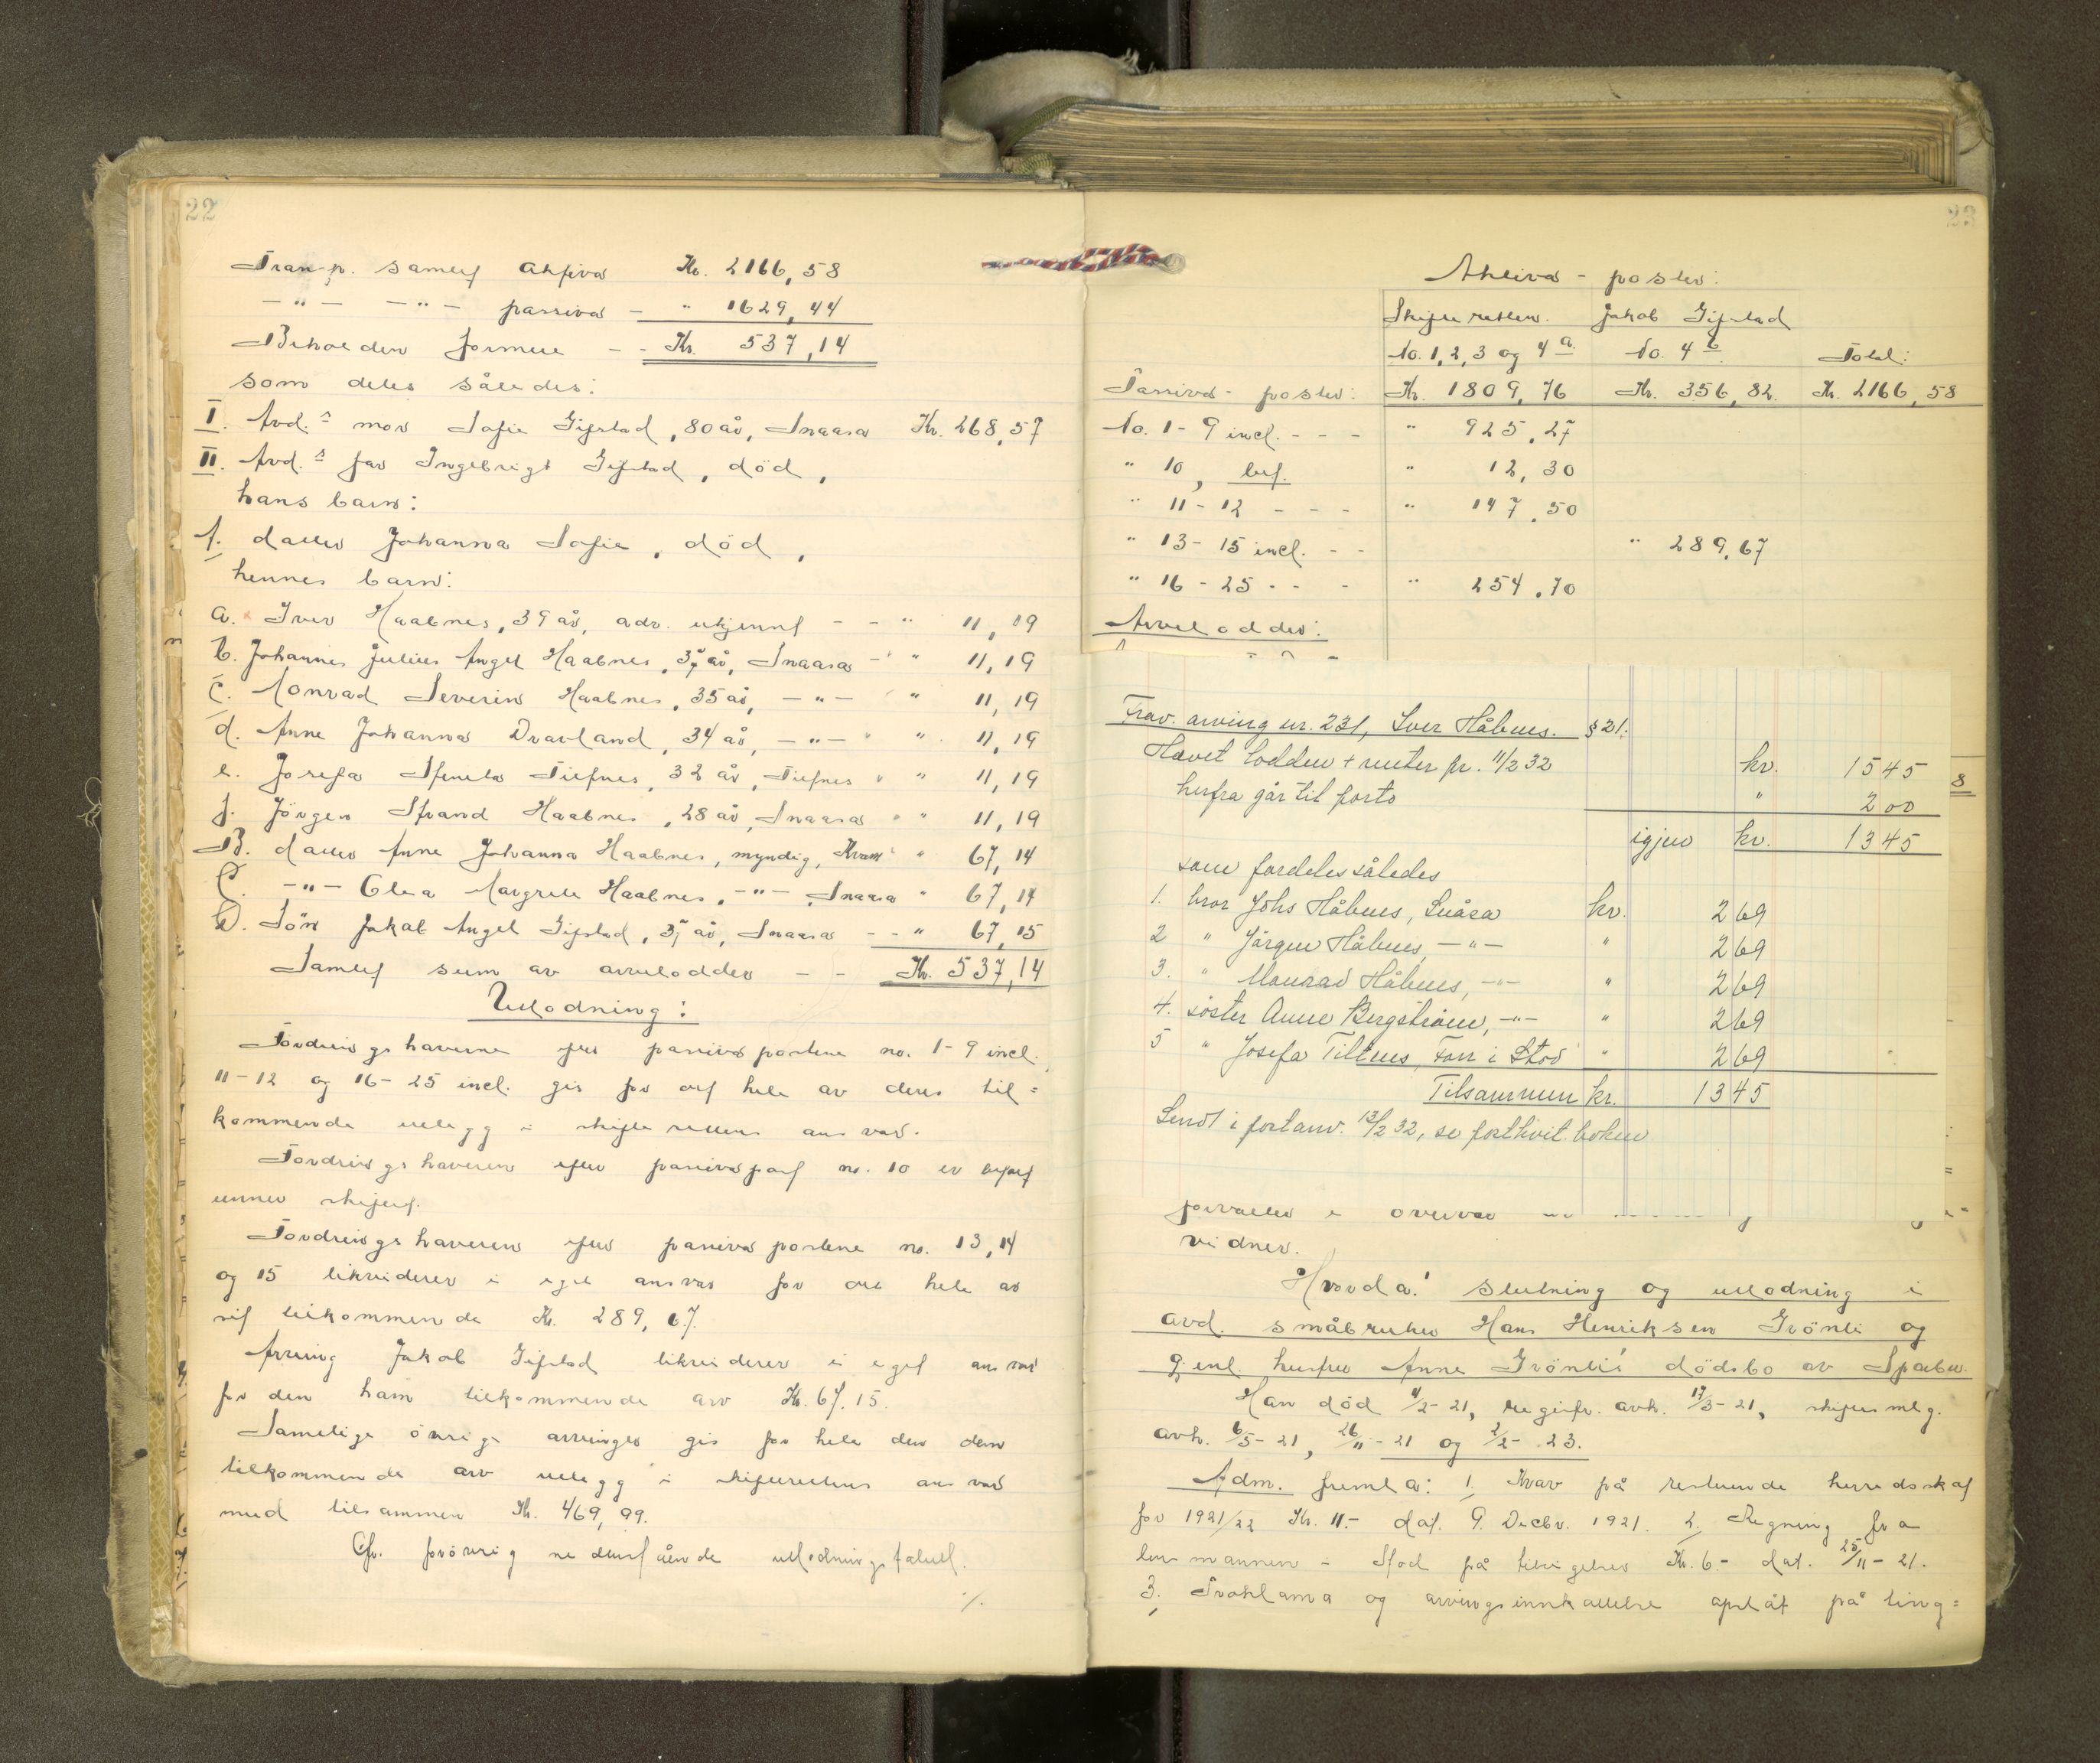 22
Transp. samlet aktiva Kr. 2166,58
—"— —"— passiva — " 1629,44
Beholden formue - - Kr. 537,14
som deles således:
I. Avd.s mor Sofie Gifstad, 80 år, Snaasa Kr. 268,57
II. Avd.s far Ingebrigt Gifstad, död,
hans barn:
A. datter Johanna Sofie, död,
hennes barn:
a. Iver Haabnes, 39 år, adr. ukjennt - - " 11,19
b. Johannes Julius Angel Haabnes, 37 år, Snaasa - " 11,19
c. Konrad Severin Haabnes, 35 år, —"— " 11,19
d. Anne Johanna Dravland, 34 år, —"— " " 11,19
e. Josefa Tiefnes, 32 år, Tiefnes " " 11,19
f. Jörgen Strand Haabnes, 28 år, Snaasa " " 11,19
B. datter Anne Johanna Haabnes, myndig, Kvam " 67,14
C. —"— Olea Margrete Haabnes, —"— Snaasa " 67,14
D. Sön Jakob Angel Gifstad, 37 år, Snaasa - - " 67,15
Samlet sum av arvelodder - - Kr. 537,14
Utlodning:
Fordringshaverne efter passivapostene no. 1-9 incl.,
11-12 og 16-25 incl. gis for det hele av deres til=
kommende utlegg i skifterettens ansvar.
Fordringshaveren efter passivapost no. 10 er betalt
unner skiftet.
Fordringshaveren efter passivapostene no. 13, 14
og 15 likviderer i eget ansvar for det hele av
sit tilkommende Kr. 289,67.
Arving Jakob Gifstad likviderer i eget ansvar
for den ham tilkommende arv Kr. 67,15.
Samtlige övrige arvinger gis for hele den dem
tilkommende arv utlegg i skifterettens ansvar
med tilsammen Kr. 469,99.
Cfr. forövrig nedenstående utlodningstabell.
./.
23
Aktiva - poster:
Skifteretten. Jakob Gifstad
No. 1, 2, 3 og 4 a. No. 4 b. Total:
Passiva - poster: Kr. 1809,76 Kr. 356,82. Kr. 2166,58
No. 1 - 9 incl. - - - " 925,27
" 10, bet. " 12,30
" 11 - 12 - - - " 147,50
" 13 - 15 incl. - - " 289,67
" 16 - 25 - - - " 254,70
Arvelodder:
Frav. arving nr. 231, Iver Håbnes. § 21.
Hævet lodden + renter pr. 11/2 32 kr. 1545
8
herfra går til porto " 200
igjen kr. 1345
som fordeles således
1. bror Johs Håbnes, Snåsa kr. 269
2 " Jörgen Håbnes, —"— " 269
3. " Konrad Håbnes, —"— " 269
4. söster Anne Bergström, —"— " 269
5 " Josefa Tiltnes, For i Stod " 269
Tilsammen kr. 1345
Sendt i postanv. 13/2 32, se postkvit. boken
forvalter i overvær
vidner.
Hvorda! slutning og utlodning i
avd. småbruker Hans Henriksen Grönli og
g. enl. hustru Anne Grönli's dödsbo av Sparbu.
Han död 4/2-21, registr. avh. 17/3-21, skiftesmlg.
avh. 6/5-21, 26/11-21 og 2/2-23.
Adm. fremla: 1, Krav på resterende herredskat
for 1921/22 Kr. 11.- dat. 9. Decbr. 1921. 2. Regning fra
lensmannen i Stod på Kr. 6.- dat. 25/11-21.
3, Proklama og arvingsinnkallelse oplæst på ting=